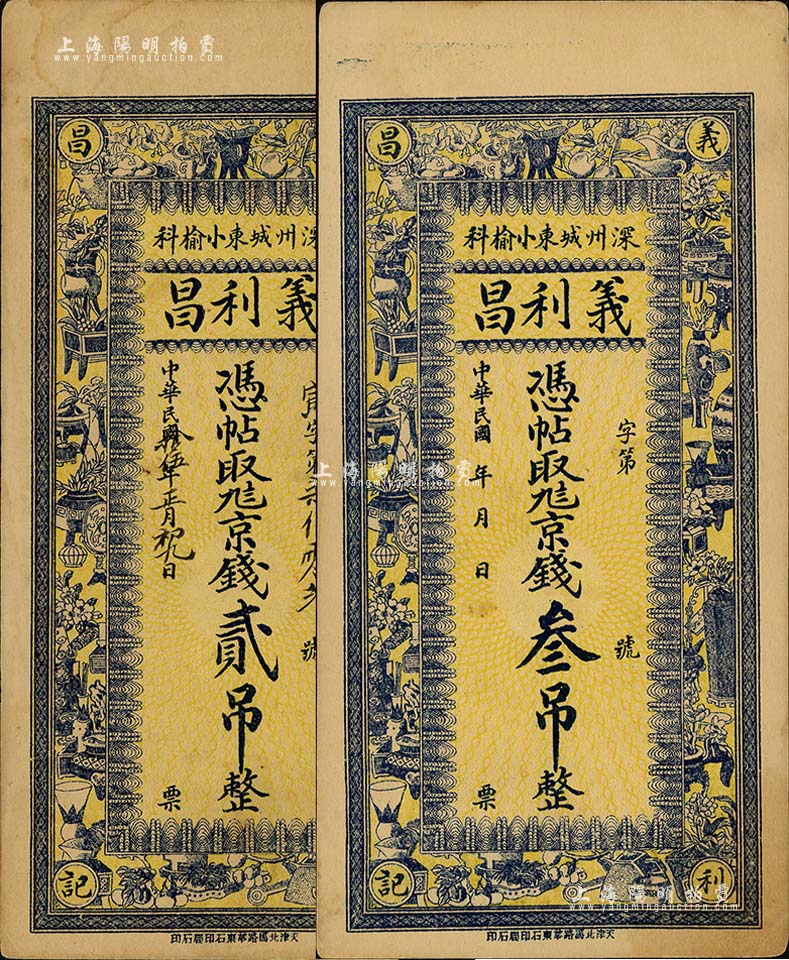 上海陽明拍賣
www.yangmingauction.com
昌
深州城東小榆科
義利昌
字第
號
憑帖取九底京錢貳吊整
中華民國拾伍年正月初九日
票
記
天津北馬路華東石印局石印
義
昌
深州城東小榆科
義利昌
字第
號
憑帖取九底京錢叁吊整
中華民國 年 月 日
票
利
記
天津北馬路華東石印局石印
上海陽明拍賣
www.yangmingauction.com
上海陽明拍賣
www.yangmingauction.com